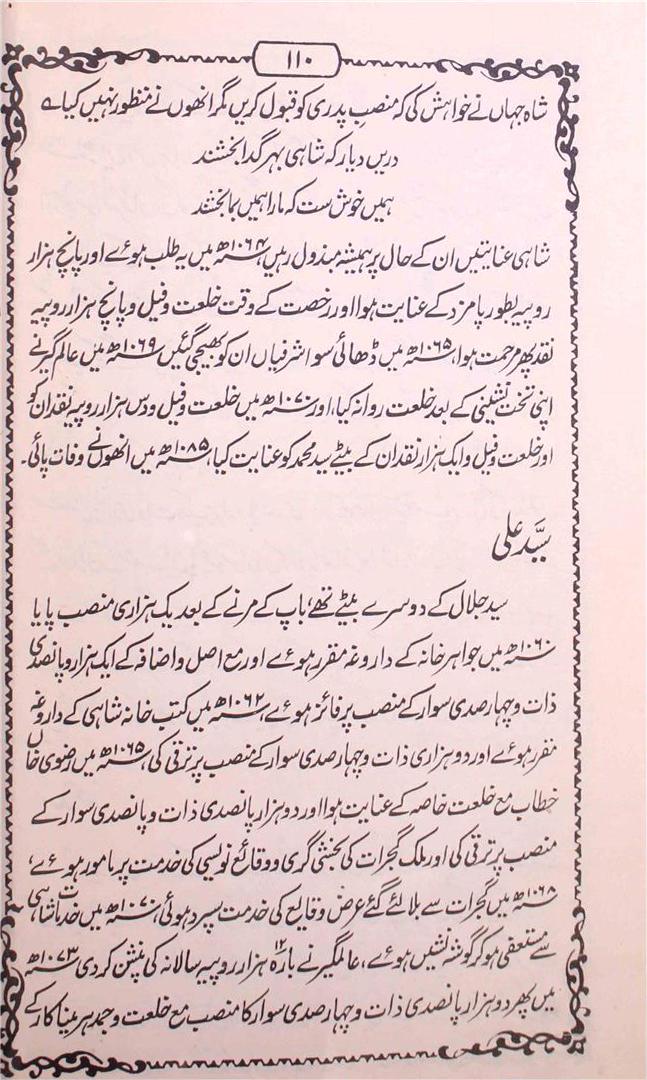 ۱۱۰
شاہ جہاں نے خواہش کی کہ منصبِ پدری کو قبول کریں مگر انھوں نے منظور نہیں کیا ؎
دریں دیار کہ شاہی بہر گدا بخشند
ہمیں خوش ست کہ مارا ہمیں بما بخشند
شاہی عنایتیں ان کے حال پر ہمیشہ مبذول رہیں ۱۰۶۴ھ میں یہ طلب ہوئے اور پانچ ہزار
روپیہ بطور پامزد کے عنایت ہوا اور رخصت کے وقت خلعت و فیل و پانچ ہزار روپیہ
نقد پھر مرحمت ہوا، ۱۰۶۵ھ میں ڈھائی سو اشرفیاں ان کو بھیجی گئیں ۱۰۶۹ھ میں عالم گیر نے
اپنی تخت نشینی کے بعد خلعت روانہ کیا، اور ۱۰۷۰ھ میں خلعت و فیل و دس ہزار روپیہ نقد ان کو
اور خلعت و فیل و ایک ہزار نقد ان کے بیٹے سید محمد کو عنایت کیا، ۱۰۸۵ھ میں انھوں نے وفات پائی۔
سیّد علی
سید جلال کے دوسرے بیٹے تھے، باپ کے مرنے کے بعد یک ہزاری منصب پایا
۱۰۶۰ھ میں جواہر خانہ کے داروغہ مقرر ہوئے اور مع اصل و اضافہ کے ایک ہزار و پانصدی
ذات و چہار صدی سوار کے منصب پر فائز ہوئے ۱۰۶۲ھ میں کتب خانہ شاہی کے داروغہ
مقرر ہوئے اور دو ہزاری ذات و چہار صدی سوار کے منصب پر ترقی کی، ۱۰۶۵ھ میں رضوی خاں
خطاب مع خلعت خاصہ کے عنایت ہوا اور دو ہزار پانصدی ذات و پانصدی سوار کے
منصب پر ترقی کی اور ملک گجرات کی بخشی گری و وقائع نویسی کی خدمت پر مامور ہوئے،
۱۰۶۸ھ میں گجرات سے بلائے گئے عرض وقایع کی خدمت سپرد ہوئی، ۱۰۷۰ھ میں خدمات شاہی
سے مستعفی ہو کر گوشہ نشیں ہوئے، عالمگیر نے بارہ ۱۲ ہزار روپیہ سالانہ کی پنشن کر دی ۱۰۷۳ھ
میں پھر دو ہزار پانصدی ذات و چہار صدی سوار کا منصب مع خلعت و جمدہر مینا کار کے